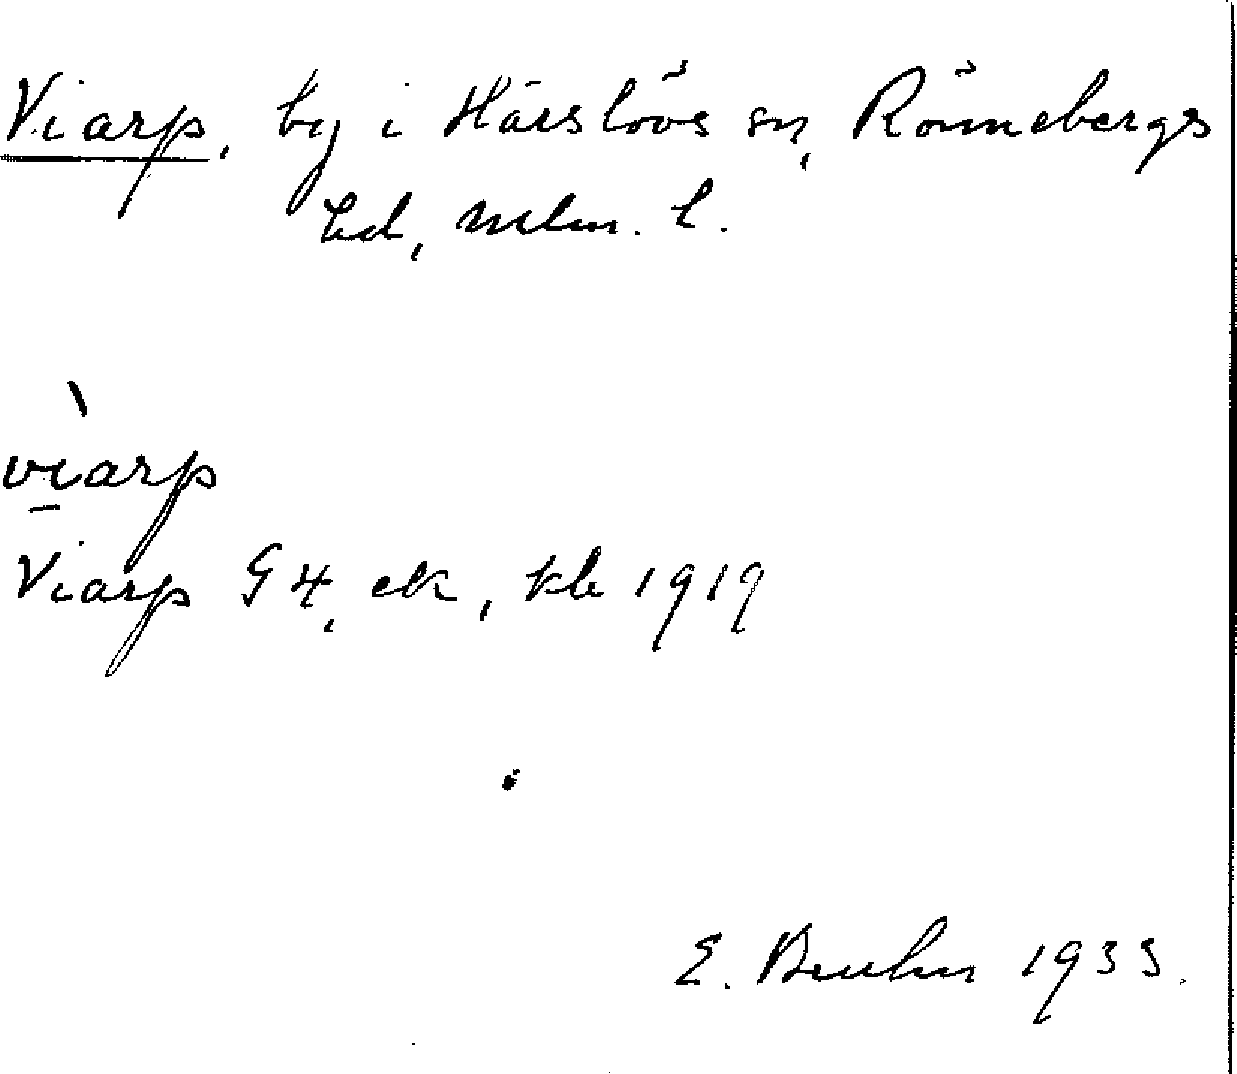 Viarp, by i Härslövs sn, Rönnebergs
hd, Mlm. l.
viarp
Viarp G4, ek, kb 1919
E. Bruhn 1933.